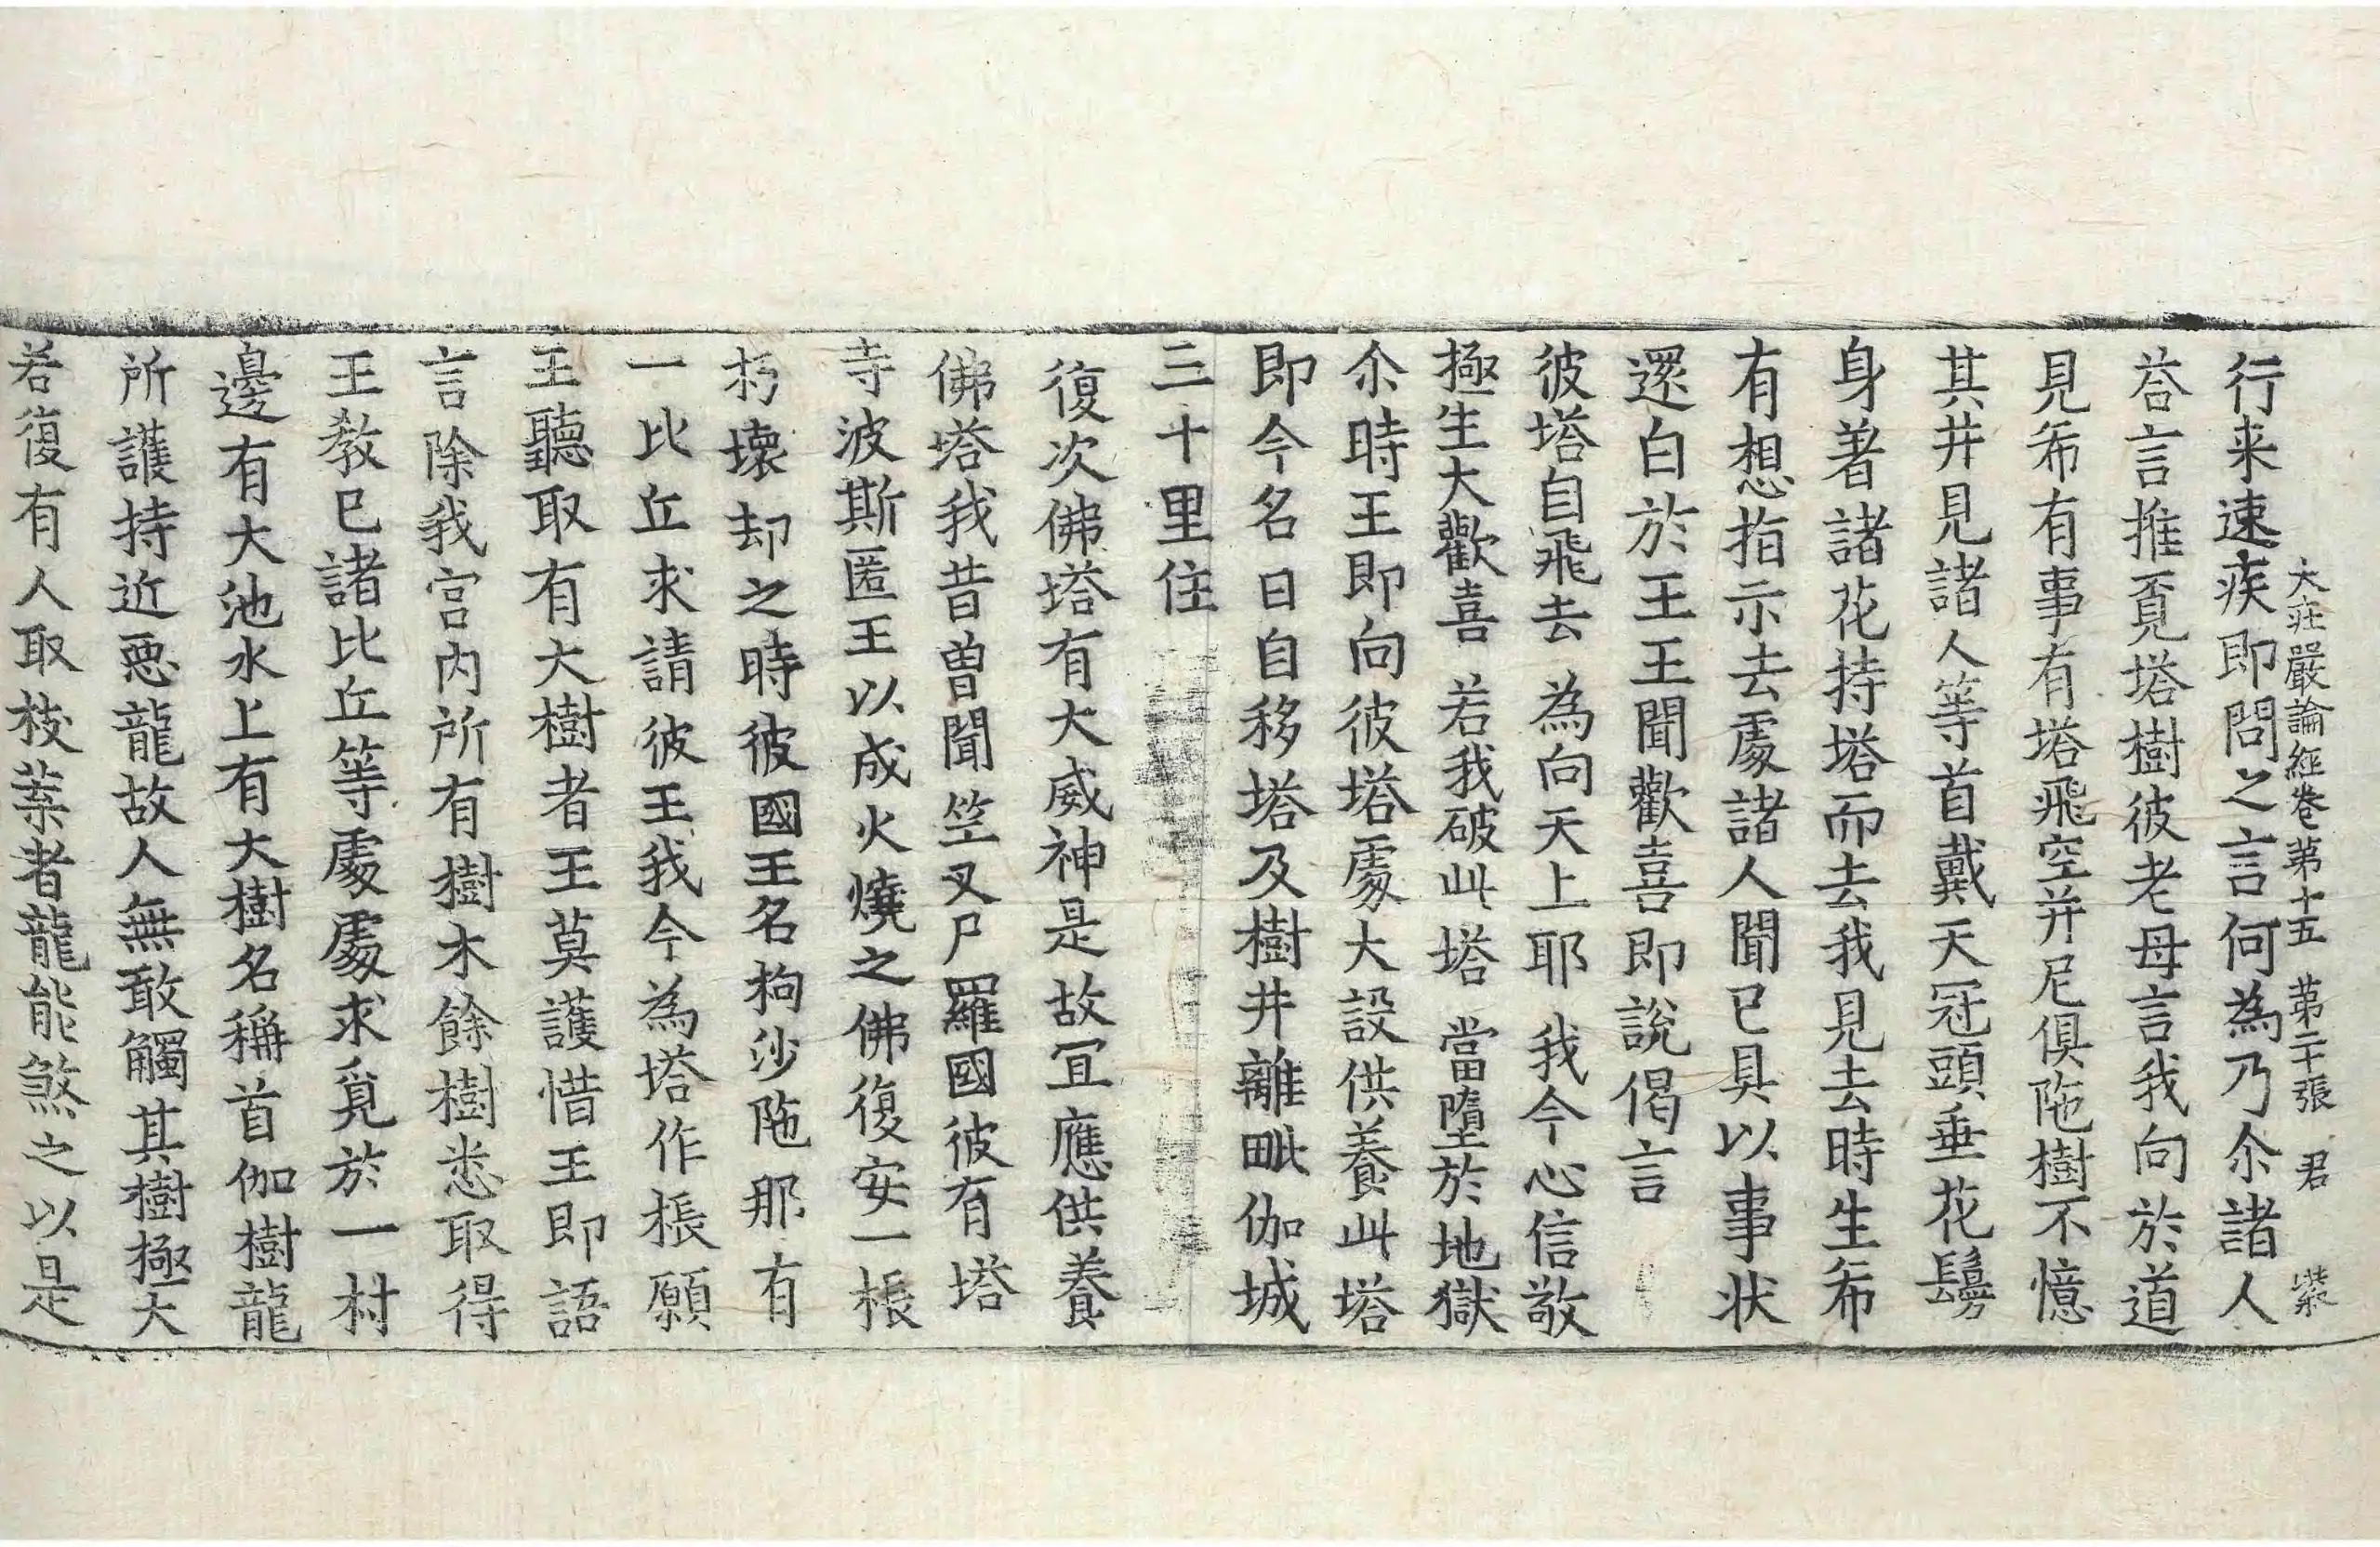 大莊嚴論經卷第十五 第二十張 君 紫
行来速疾即問之言何為乃尒諸人
荅言推覓塔樹彼老母言我向於道
見希有事有塔飛空并尼俱陁樹不憶
其井見諸人等首戴天冠頭垂花鬘
身著諸花持塔而去我見去時生希
有想指示去處諸人聞已具以事状
還白於王王聞歡喜即說偈言
彼塔自飛去 為向天上耶 我今心信敬
極生大歡喜 若我破此塔 當墮於地獄
尒時王即向彼塔處大設供養此塔
即今名曰自移塔及樹井離毗伽城
三十里住
復次佛塔有大威神是故宜應供養
佛塔我昔曾聞竺叉尸羅國彼有塔
寺波斯匿王以成火燒之佛復安一棖
朽壞却之時彼國王名枸沙陁那有
一比丘求請彼王我今為塔作棖願
王聽取有大樹者王莫護惜王即語
言除我宮内所有樹木餘樹悉取得
王教已諸比丘等處處求覓於一村
邊有大池水上有大樹名稱首伽樹龍
所護持近惡龍故人無敢觸其樹極大
若復有人取枝葉者龍能煞之以是